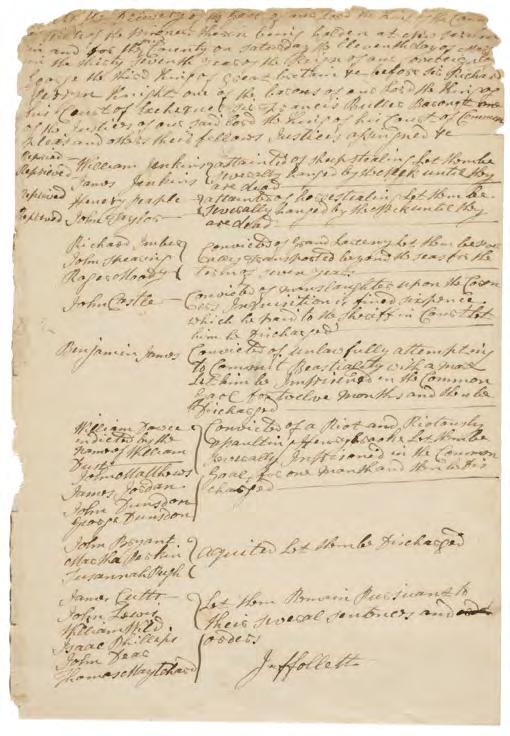 the Delivery of the Gaol of our Lord the King of the Coun
of the Prisoners therein being holden at
in and for the County on Saturday the Eleventh day of
in the thirty Seventh year of the Reign of our Sovereign
George the third King of Great Britain &c before Sir Richard
Perryn Knight one of the Barons of our Lord the King of
his Court of Exchequer Sir Francis Buller Baronet one
of the Justices of our said Lord the King of his Court of Common
Pleas and others their fellows Justices assigned &c
Reprieved William Jenkins attainted of sheepstealing Let them be
Reprieved James Jenkins severally hanged by the Neck until they
are dead
Reprieved Henry attainted of horsestealing Let them be
Reprieved John Taylor severally hanged by the Neck until they
are dead
Richard Convicted of Grand Larceny Let them be sever
John Spearing ally transported beyond the seas for the
Roger Moody term of seven years
John Castle Convicted of Manslaughter upon the Coron
ers Inquisition is fined sixpence
which he paid to the Sheriff in Court Let
him be Discharged
Benjamin James Convicted of unlawfully attempting
to Commit Beastiality with a
Let him be Imprisoned in the Common
Gaol for twelve Months and then be
Discharged
William Convicted of a Riot and Riotously
indicted by the assaulting Henry Let them be
Name of William severally Imprisoned in the Common
John Matthews Gaol for one Month and then dis
James Jordan charged
John Dunsdon
George Dunsdon
John Bryant
Martha acquited Let them be Discharged
Susannah Pugh
James Cutts
John Lewis Let them Remain Pursuant to
William Wild their several sentences and
Isaac Phillips orders
John Deas
Thomas Maytchard
Jn Follett